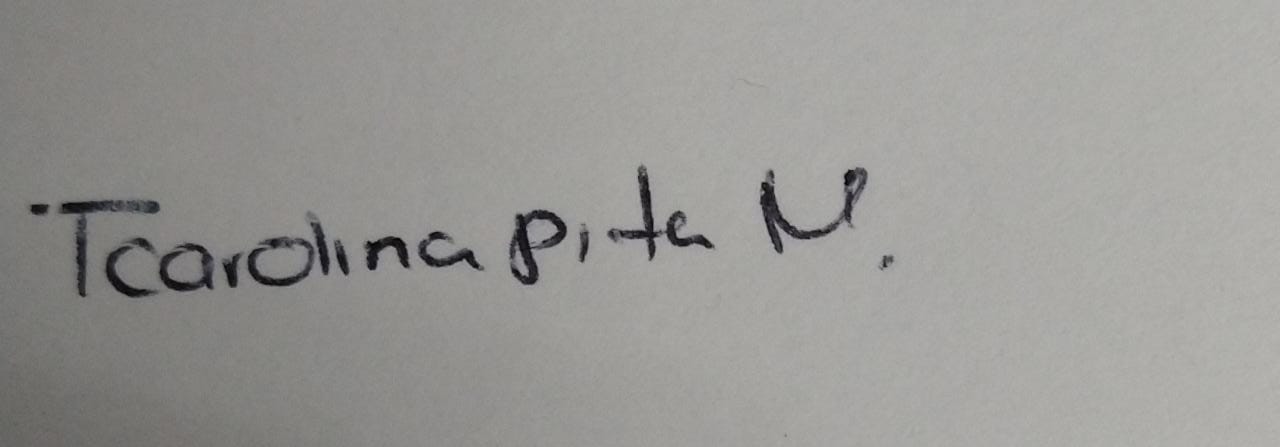 Tcarolina pita N.